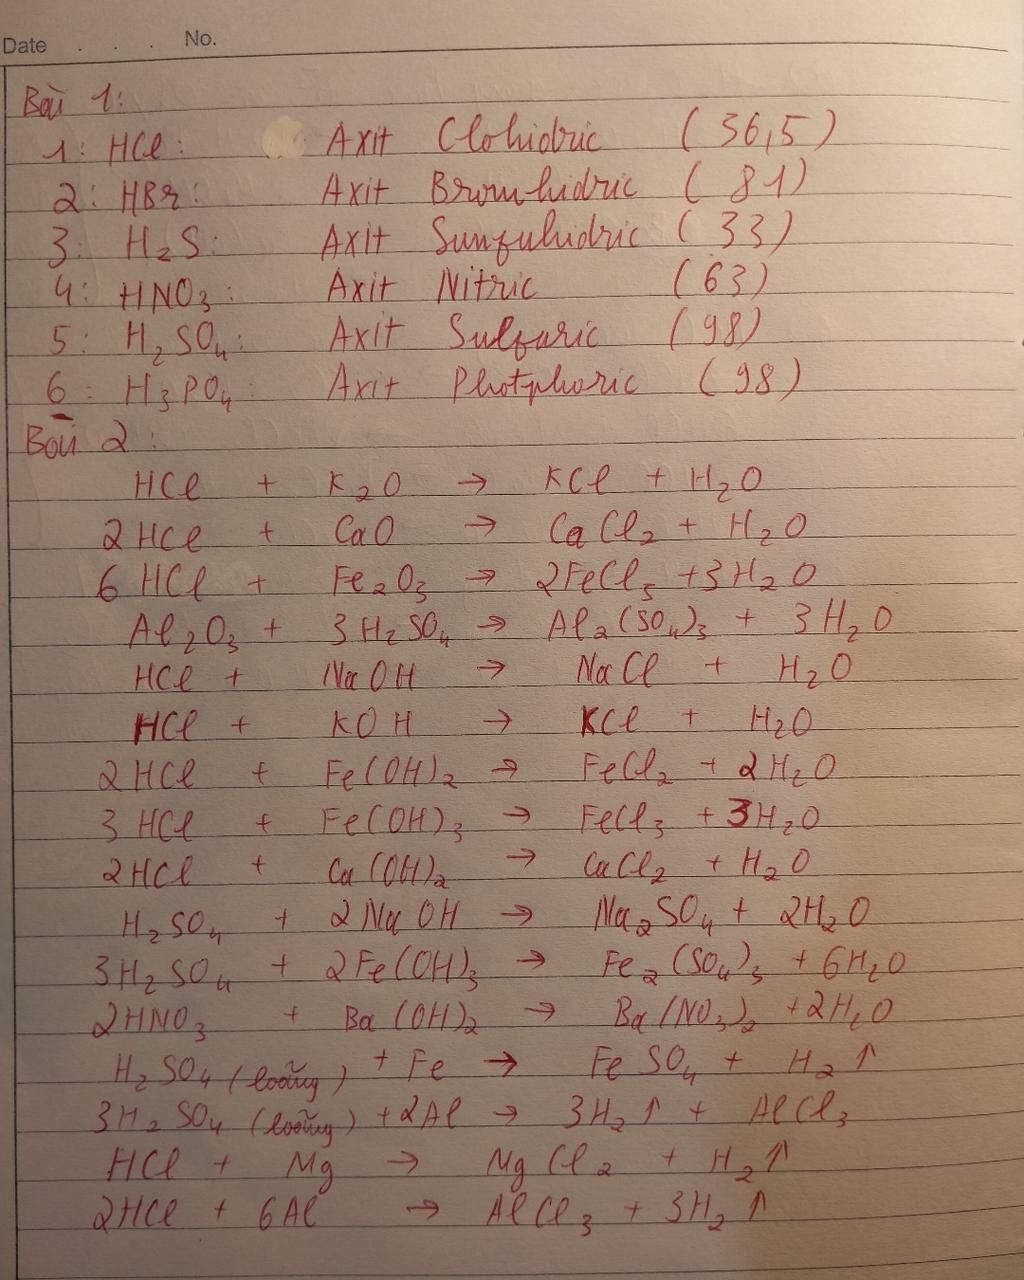 Date . . . No.
Bài 1:
1: HCl: Axit Clohidric (36,5)
2: HBr: Axit Bromhidric (81)
3: H₂S: Axit Sunfuhidric (33)
4: HNO₃: Axit Nitric (63)
5: H₂SO₄: Axit Sulfuric (98)
6: H₃PO₄: Axit Photphoric (98)
Bài 2:
HCl + K₂O → KCl + H₂O
2HCl + CaO → CaCl₂ + H₂O
6 HCl + Fe₂O₃ → 2FeCl₃ + 3H₂O
Al₂O₃ + 3H₂SO₄ → Al₂(SO₄)₃ + 3H₂O
HCl + NaOH → NaCl + H₂O
HCl + KOH → KCl + H₂O
2HCl + Fe(OH)₂ → FeCl₂ + 2H₂O
3 HCl + Fe(OH)₃ → FeCl₃ + 3H₂O
2HCl + Ca(OH)₂ → CaCl₂ + H₂O
H₂SO₄ + 2NaOH → Na₂SO₄ + 2H₂O
3H₂SO₄ + 2Fe(OH)₃ → Fe₂(SO₄)₃ + 6H₂O
2HNO₃ + Ba(OH)₂ → Ba(NO₃)₂ + 2H₂O
H₂SO₄ (loãng) + Fe → FeSO₄ + H₂↑
3H₂SO₄ (loãng) + 2Al → 3H₂↑ + AlCl₃
HCl + Mg → MgCl₂ + H₂↑
2HCl + 6Al → AlCl₃ + 3H₂↑